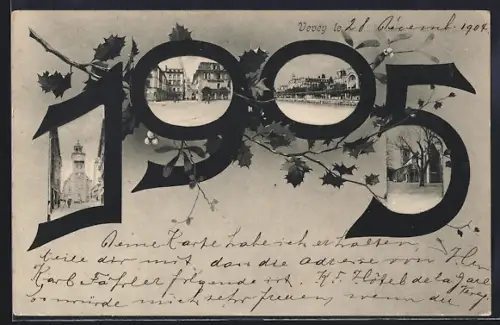 Vevey le 28 Décemb. 1904.
1905
Deine Karte habe ich erhalten,
teile dir mit das die adresse von Hern
Karl Fahrer folgende ist. H. F. Hôtel de la gare
Vevey,
es würde mich sehr freuen, wenn du